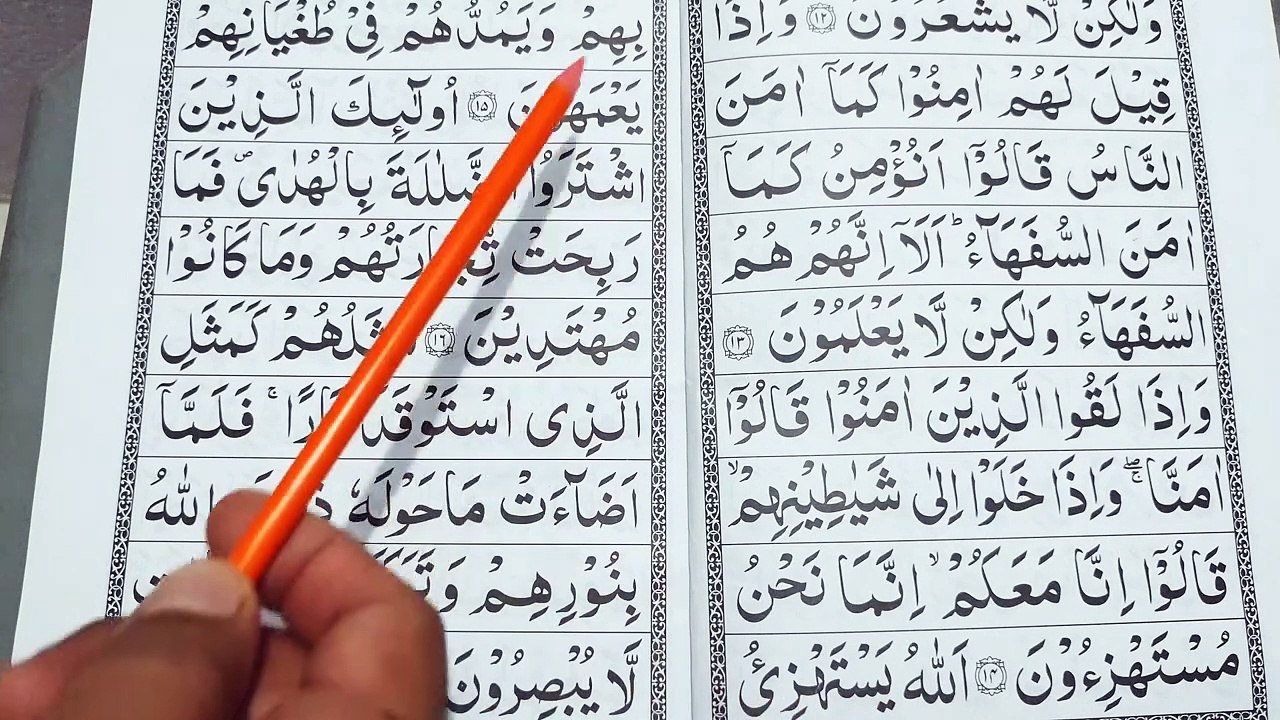 وَلٰكِنْ لَّا يَشْعُرُوْنَ ۝۱۲ وَاِذَا
قِيْلَ لَهُمْ اٰمِنُوْا كَمَاۤ اٰمَنَ
النَّاسُ قَالُوْۤا اَنُؤْمِنُ كَمَاۤ
اٰمَنَ السُّفَهَآءُ ؕ اَلَاۤ اِنَّهُمْ هُمُ
السُّفَهَآءُ وَلٰكِنْ لَّا يَعْلَمُوْنَ ۝۱۳
وَاِذَا لَقُوا الَّذِيْنَ اٰمَنُوْا قَالُوْۤا
اٰمَنَّا ۚۖ وَاِذَا خَلَوْا اِلٰى شَيٰطِيْنِهِمْ ۙ
قَالُوْۤا اِنَّا مَعَكُمْ ۙ اِنَّمَا نَحْنُ
مُسْتَهْزِءُوْنَ ۝۱۴ اَللّٰهُ يَسْتَهْزِئُ
بِهِمْ وَيَمُدُّهُمْ فِيْ طُغْيَانِهِمْ
يَعْمَهُوْنَ ۝۱۵ اُولٰٓئِكَ الَّذِيْنَ
اشْتَرَوُا الضَّلٰلَةَ بِالْهُدٰى ۪ فَمَا
رَبِحَتْ تِّجَارَتُهُمْ وَمَا كَانُوْا
مُهْتَدِيْنَ ۝۱۶ مَثَلُهُمْ كَمَثَلِ
الَّذِى اسْتَوْقَدَ نَارًا ۚ فَلَمَّاۤ
اَضَآءَتْ مَاحَوْلَهٗ اللّٰهُ
بِنُوْرِهِمْ
لَّا يُبْصِرُوْنَ